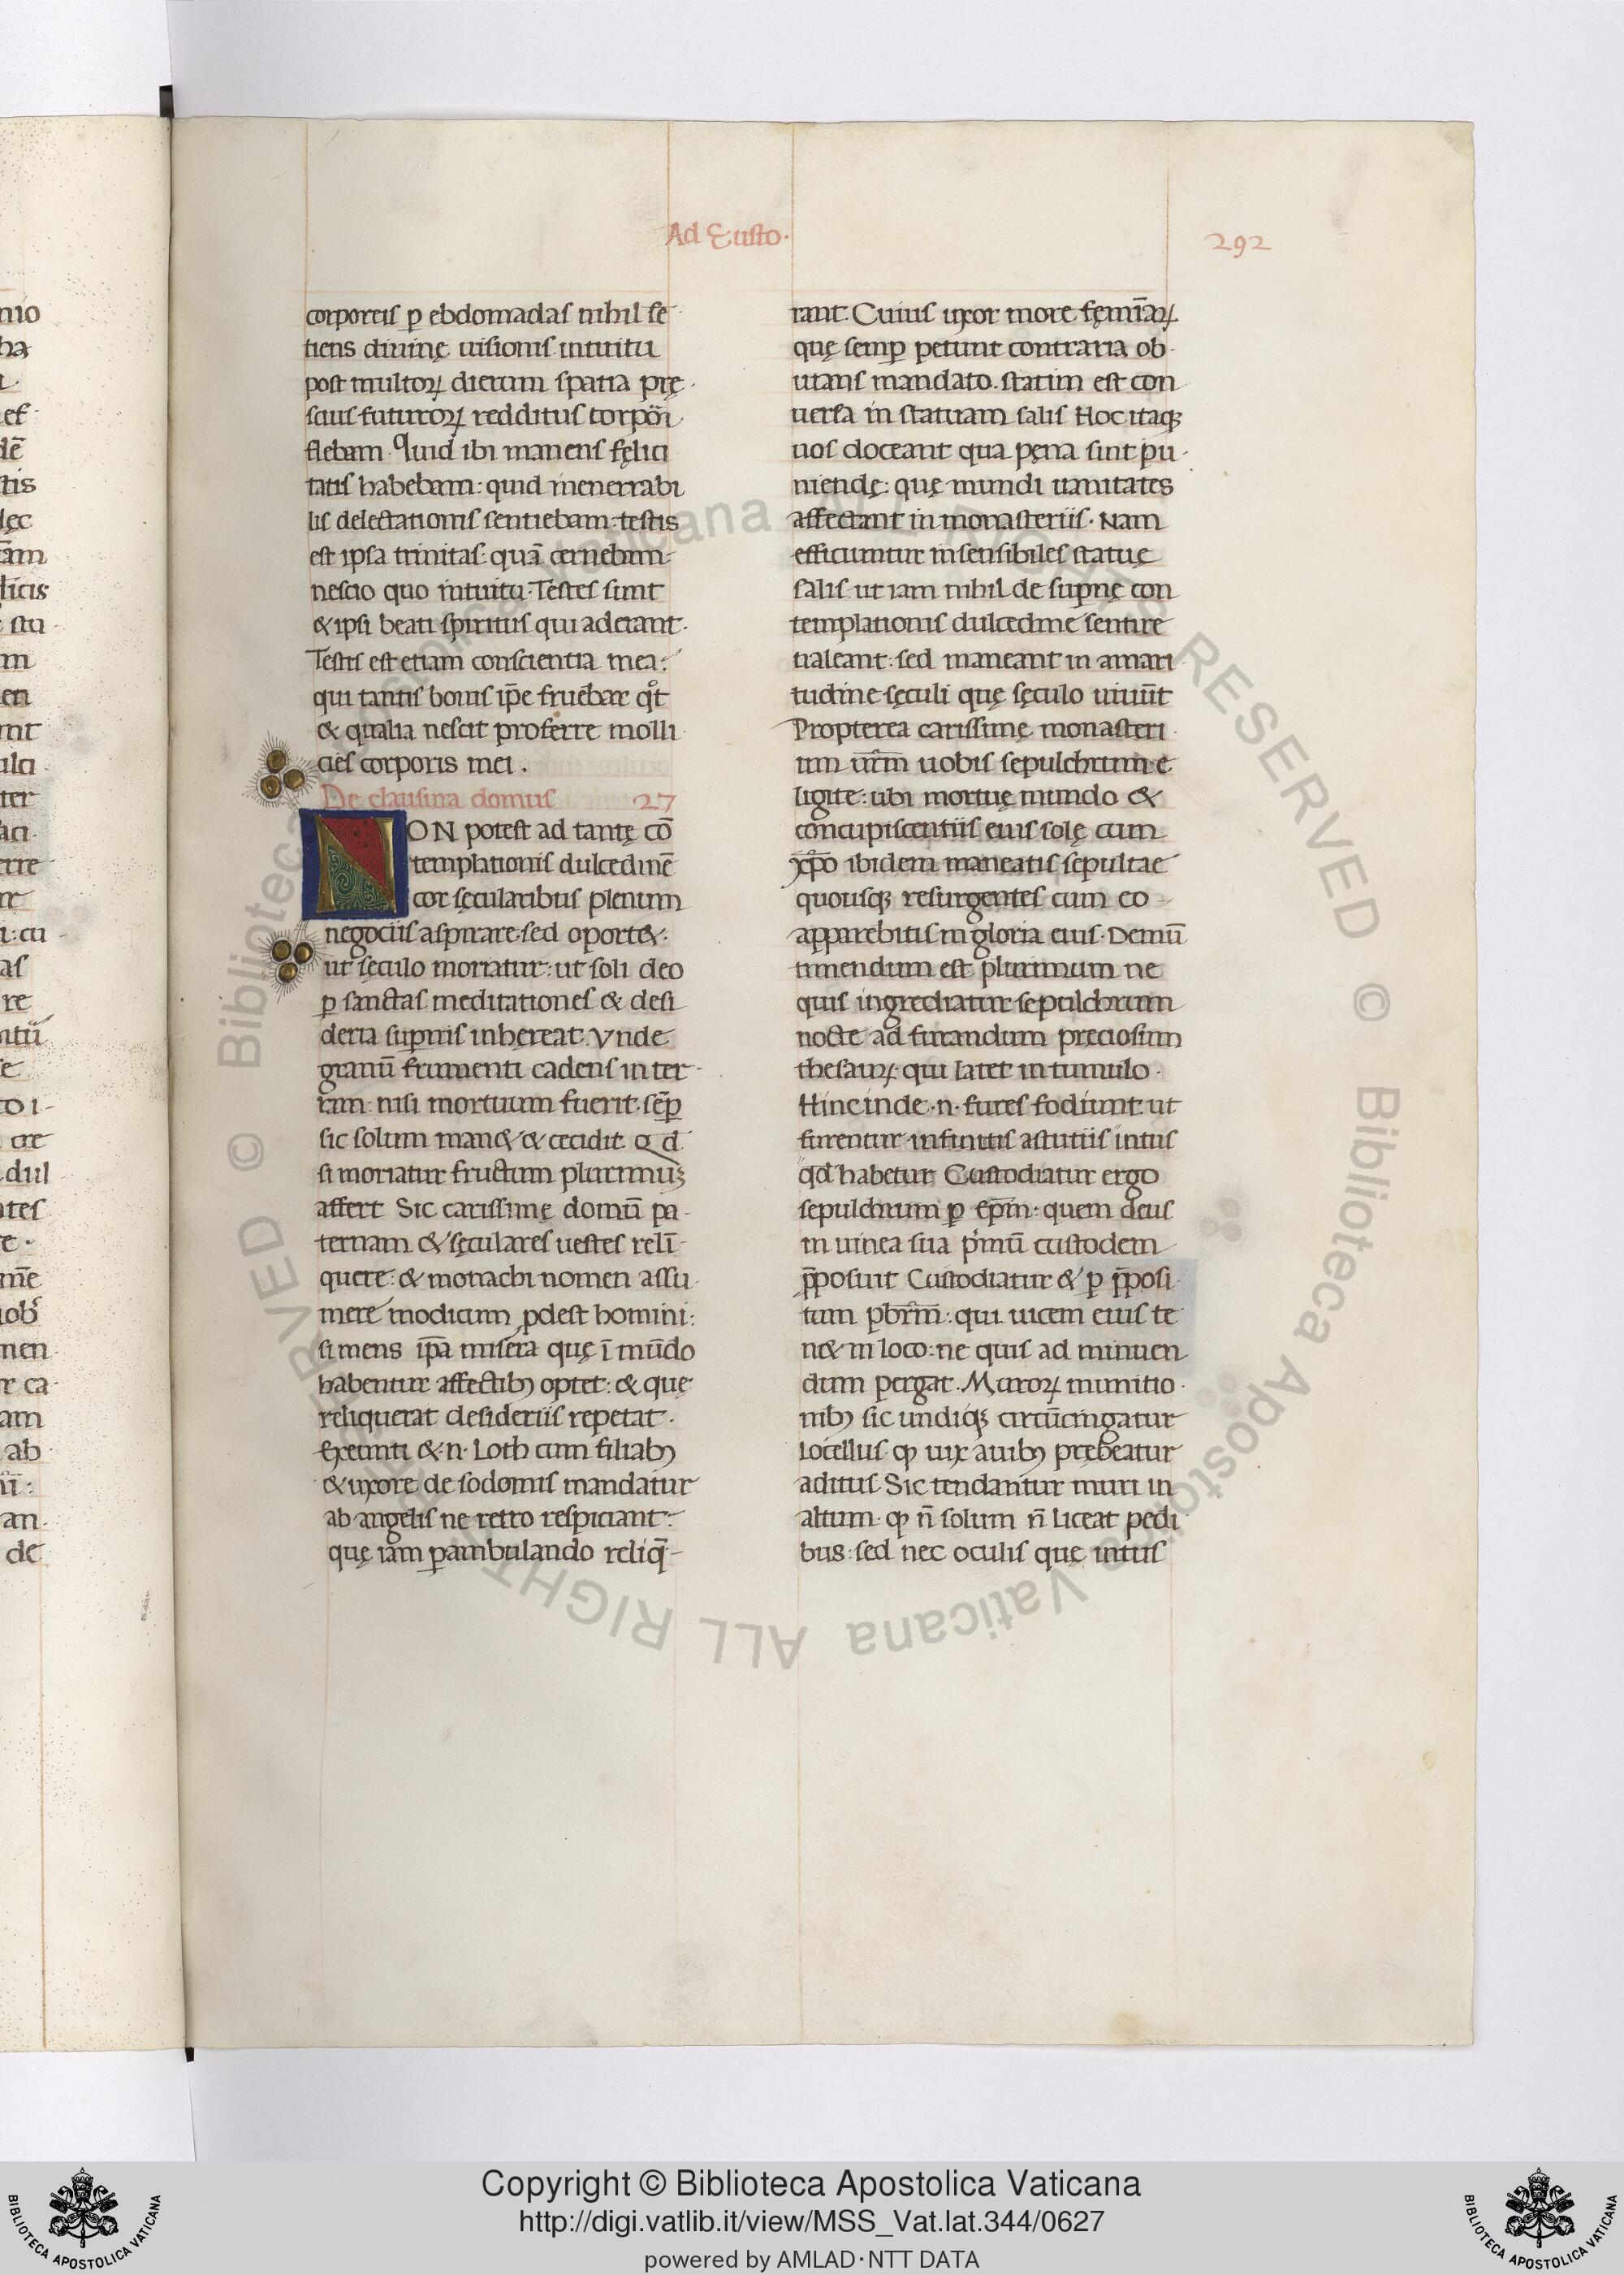 Ad Eusto·
292
corporeis ꝑ ebdomadas nihil sē
tiens diuinę uisionis intuitu
post multoꝝ dierum spatia prę
scius futuroꝝ redditus corpori
flebam. Quid ibi manens fęlici
tatis habebam: quid inenerrabi
lis delectationis sentiebam: testis
est ipsa trinitas: quā cernebam
nescio quo intuitu. Testes sunt
& ipsi beati spiritus qui aderant.
Testis est etiam conscientia mea:
qui tantis bonis ip̄e fruebar
& qualia nescit proferre molli
cies corporis mei.
De clausura domus 27
NON potest ad tantę cō
templationis dulcedinē
cor sęcularibus plenum
negociis aspirare. sed oport&:
ut sęculo moriatur: ut soli deo
ꝑ sanctas meditationes & desi
deria supernis inhęreat. Vnde
granū frumenti cadens in ter
ram: nisi mortuum fuerit. sēꝑ
sic solum man& & cecidit. Qd
si moriatur fructum plurimuꝫ
affert Sic carissimę domū pa
ternam & sęculares uestes reli
quere: & monachi nomen assu
mere modicum ꝓdest homini:
si mens ip̄a misera quę ī mūdo
habentur affectibꝫ optet: & quę
reliquerat desideriis repetat.
Exeunti &·n· Loth cum filiabꝫ
& uxore de sodomis mandatur
ab angelis ne retro respiciant:
quę iam ꝑambulando reliq̄
rant. Cuius uxor more fęminaꝝ
quę semꝑ petunt contraria ob
uians mandato. statim est con
uersa in statuam salis Hoc itaqꝫ
uos doceant qua pęna sint pu
niendę: quę mundi uanitates
affectant in monasteriis. Nam
efficiuntur insensibiles statuę
salis: ut iam nihil de supernę con
templationis dulcedine sentire
ualeant: sed maneant in amari
tudine sęculi quę sęculo uiuūt
Propterea carissimę monasteri
um ur̄m uobis sepulchrum e
ligite: ubi mortuę mundo &
concupiscentiis eius solę cum
xp̄o ibidem maneatis sepultae
quousqꝫ resurgentes cum eo
apparebitis in gloria eius. Demū
timendum est plurimum ne
quis ingrediatur sepulchrum
nocte ad furandum pręciosum
thesauꝝ qui latet in tumulo.
Hinc inde ·n· fures fodiunt: ut
furentur infinitis astutiis intus
qd̄ habetur Custodiatur ergo
sepulchrum ꝑ ep̄m: quem deus
in uinea sua pͥmū custodem
p̄posuit Custodiatur & ꝑ p̄posi
tum pbr̄m: qui uicem eius te
n& in loco: ne quis ad minuen
dum pergat. Muroꝝ munitio
nibꝫ sic undiqꝫ circūcingatur
locellus. ꝙ uix auibꝫ prębeatur
aditus. Sic tendantur muri in
altum. ꝙ n̄ solum n̄ liceat pedi
bus: sed nec oculis quę intus
Copyright © Biblioteca Apostolica Vaticana
http://digi.vatlib.it/view/MSS_Vat.lat.344/0627
powered by AMLAD·NTT DATA